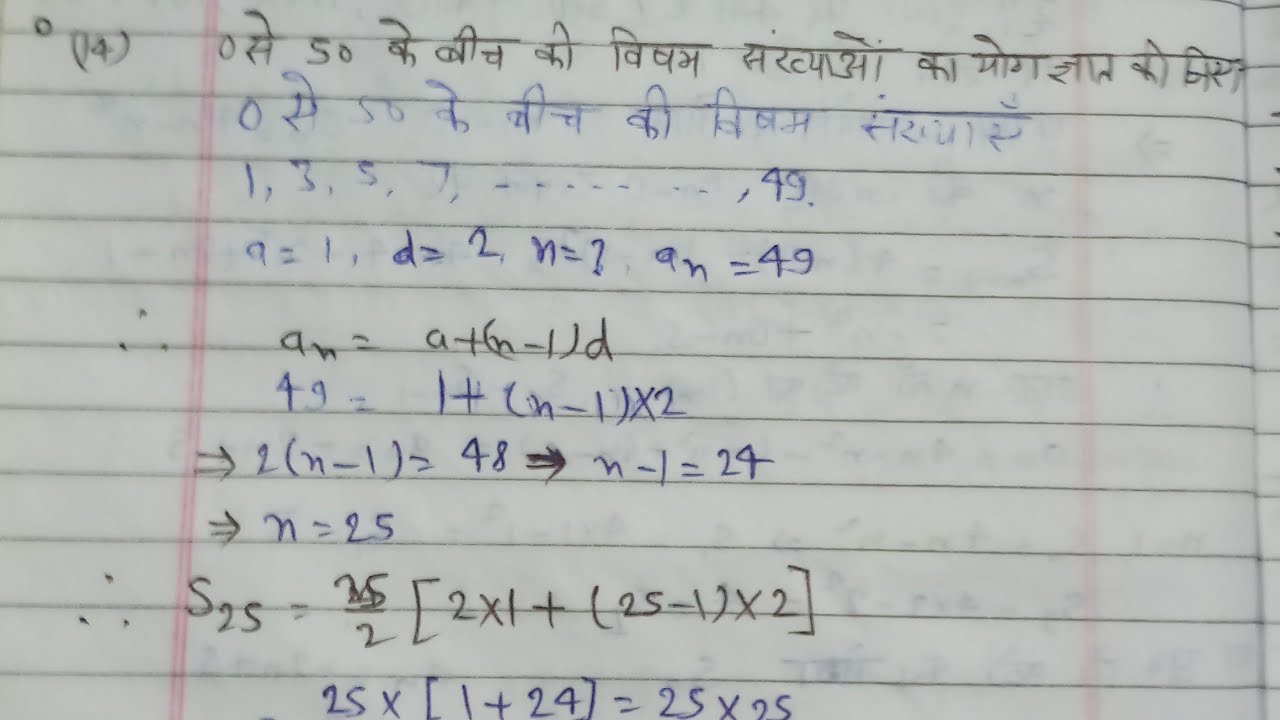 (14) 0 से 50 के बीच की विषम संख्याओं का योग ज्ञात कीजिए
0 से 50 के बीच की विषम संख्याएँ
1, 3, 5, 7, - - - - - - - - , 49.
a = 1, d = 2, n = ?, aₙ = 49
∴ aₙ = a + (n - 1) d
49 = 1 + (n - 1) × 2
⇒ 2(n - 1) = 48 ⇒ n - 1 = 24
⇒ n = 25
∴ S₂₅ = 25/2 [2×1 + (25-1)×2]
25 × [1 + 24] = 25 × 25